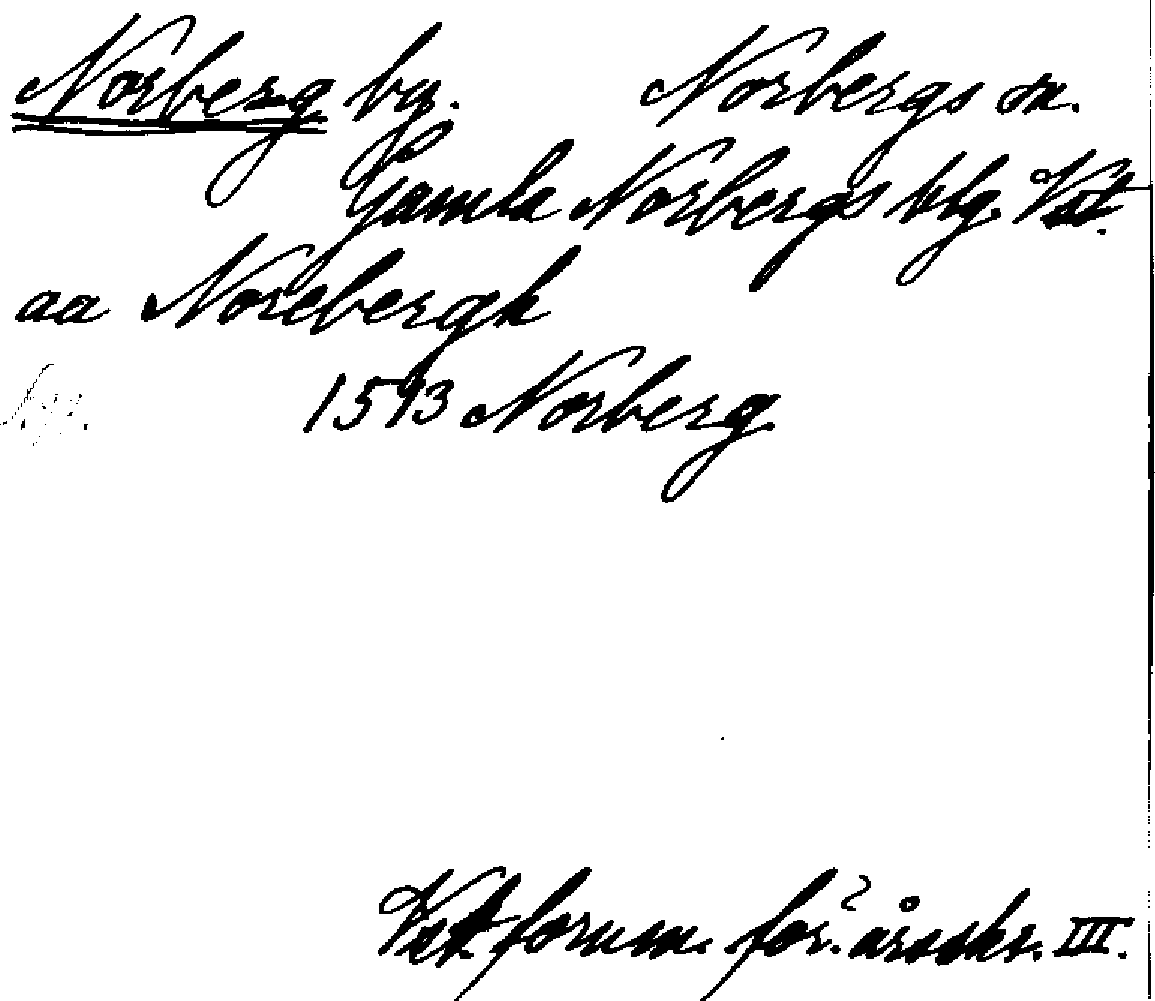 Norberg by. Norbergs sn.
Gamla Norbergs blg. Vstl.
aa Norebergh
by. 1593 Norberg
Vstl. fornm. för:s årsskr. III.